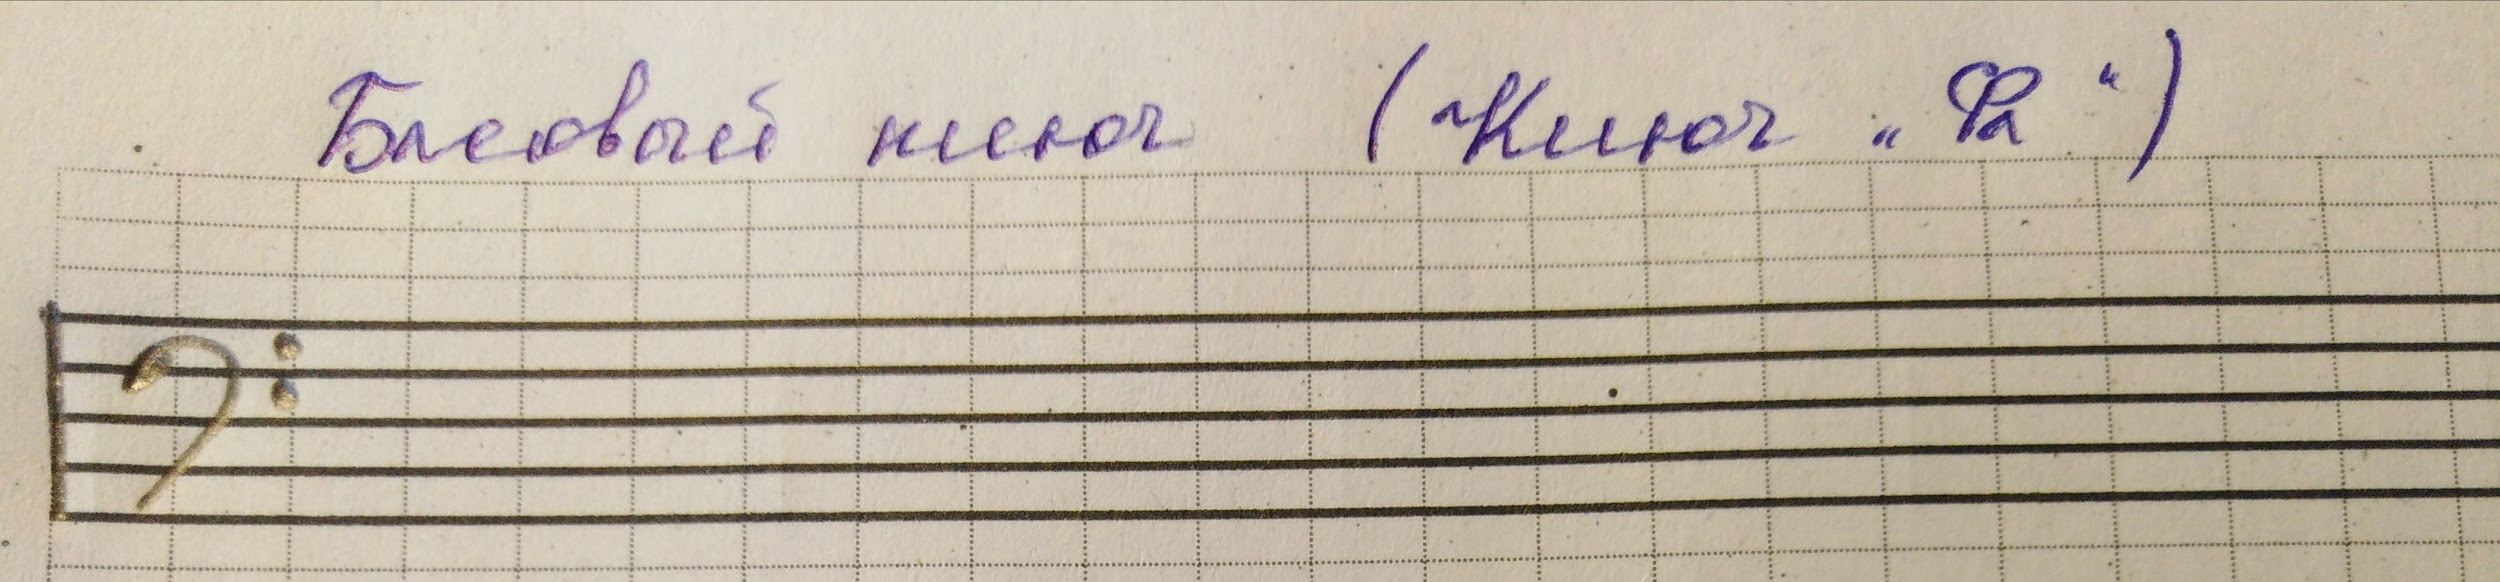 Басовый ключ (Ключ „Фа“)